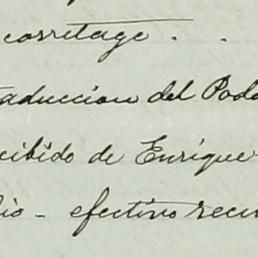 corretage . .
aduccion del Pod
cibido de Enrique
io - efectivo reci